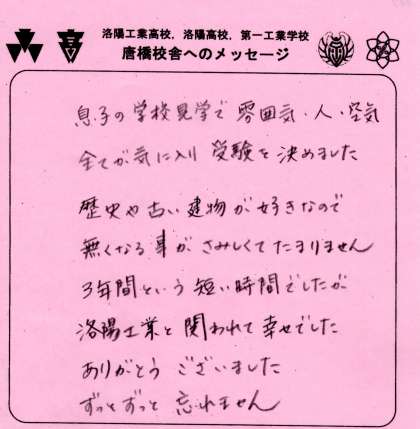 洛陽工業高校，洛陽高校，第一工業学校
唐橋校舎へのメッセージ
息子の学校見学で 雰囲気・人・空気
全てが気に入り 受験を決めました
歴史や古い建物が好きなので
無くなる事が さみしくてたまりません
3年間という 短い時間でしたが
洛陽工業と 関われて幸せでした
ありがとう ございました
ずっとずっと 忘れません